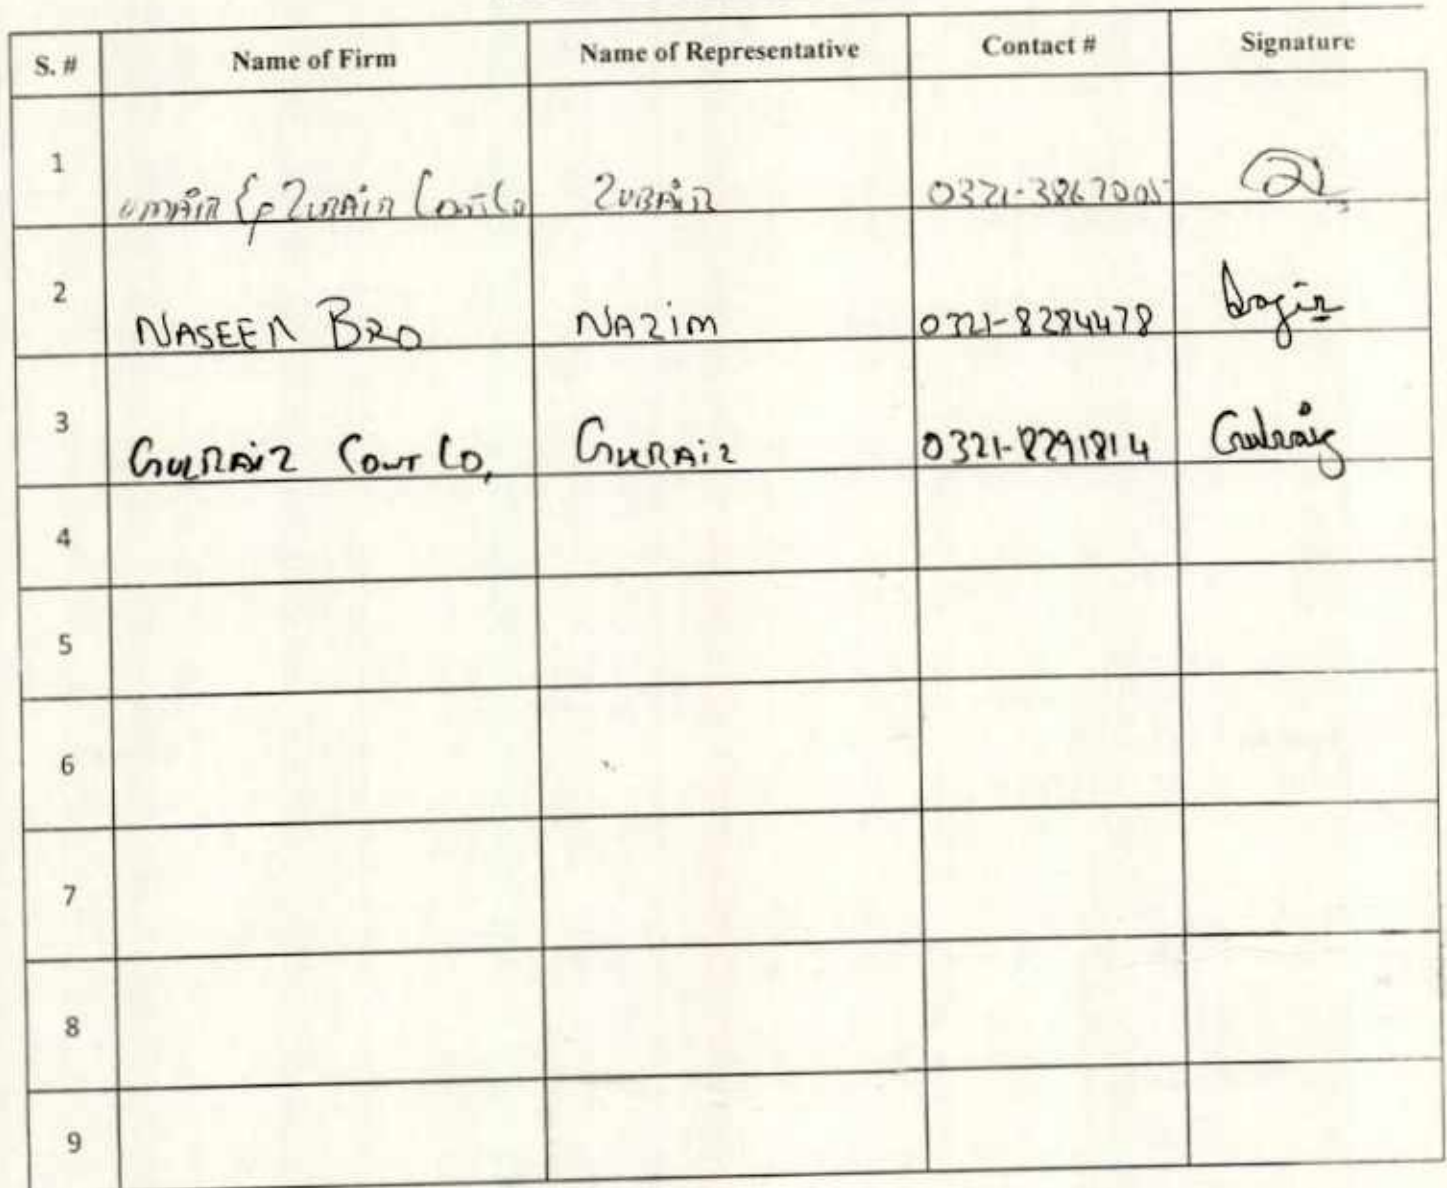 S. # Name of Firm Name of Representative Contact # Signature
1 UMAIR & ZUBAIR Cont Co ZUBAIR 0321-3867005
2 NASEER BRO NAZIM 0321-8284478
3 GULRAIZ Cont Co, GULRAIZ 0321-8291814 Gulraiz
4
5
6
7
8
9